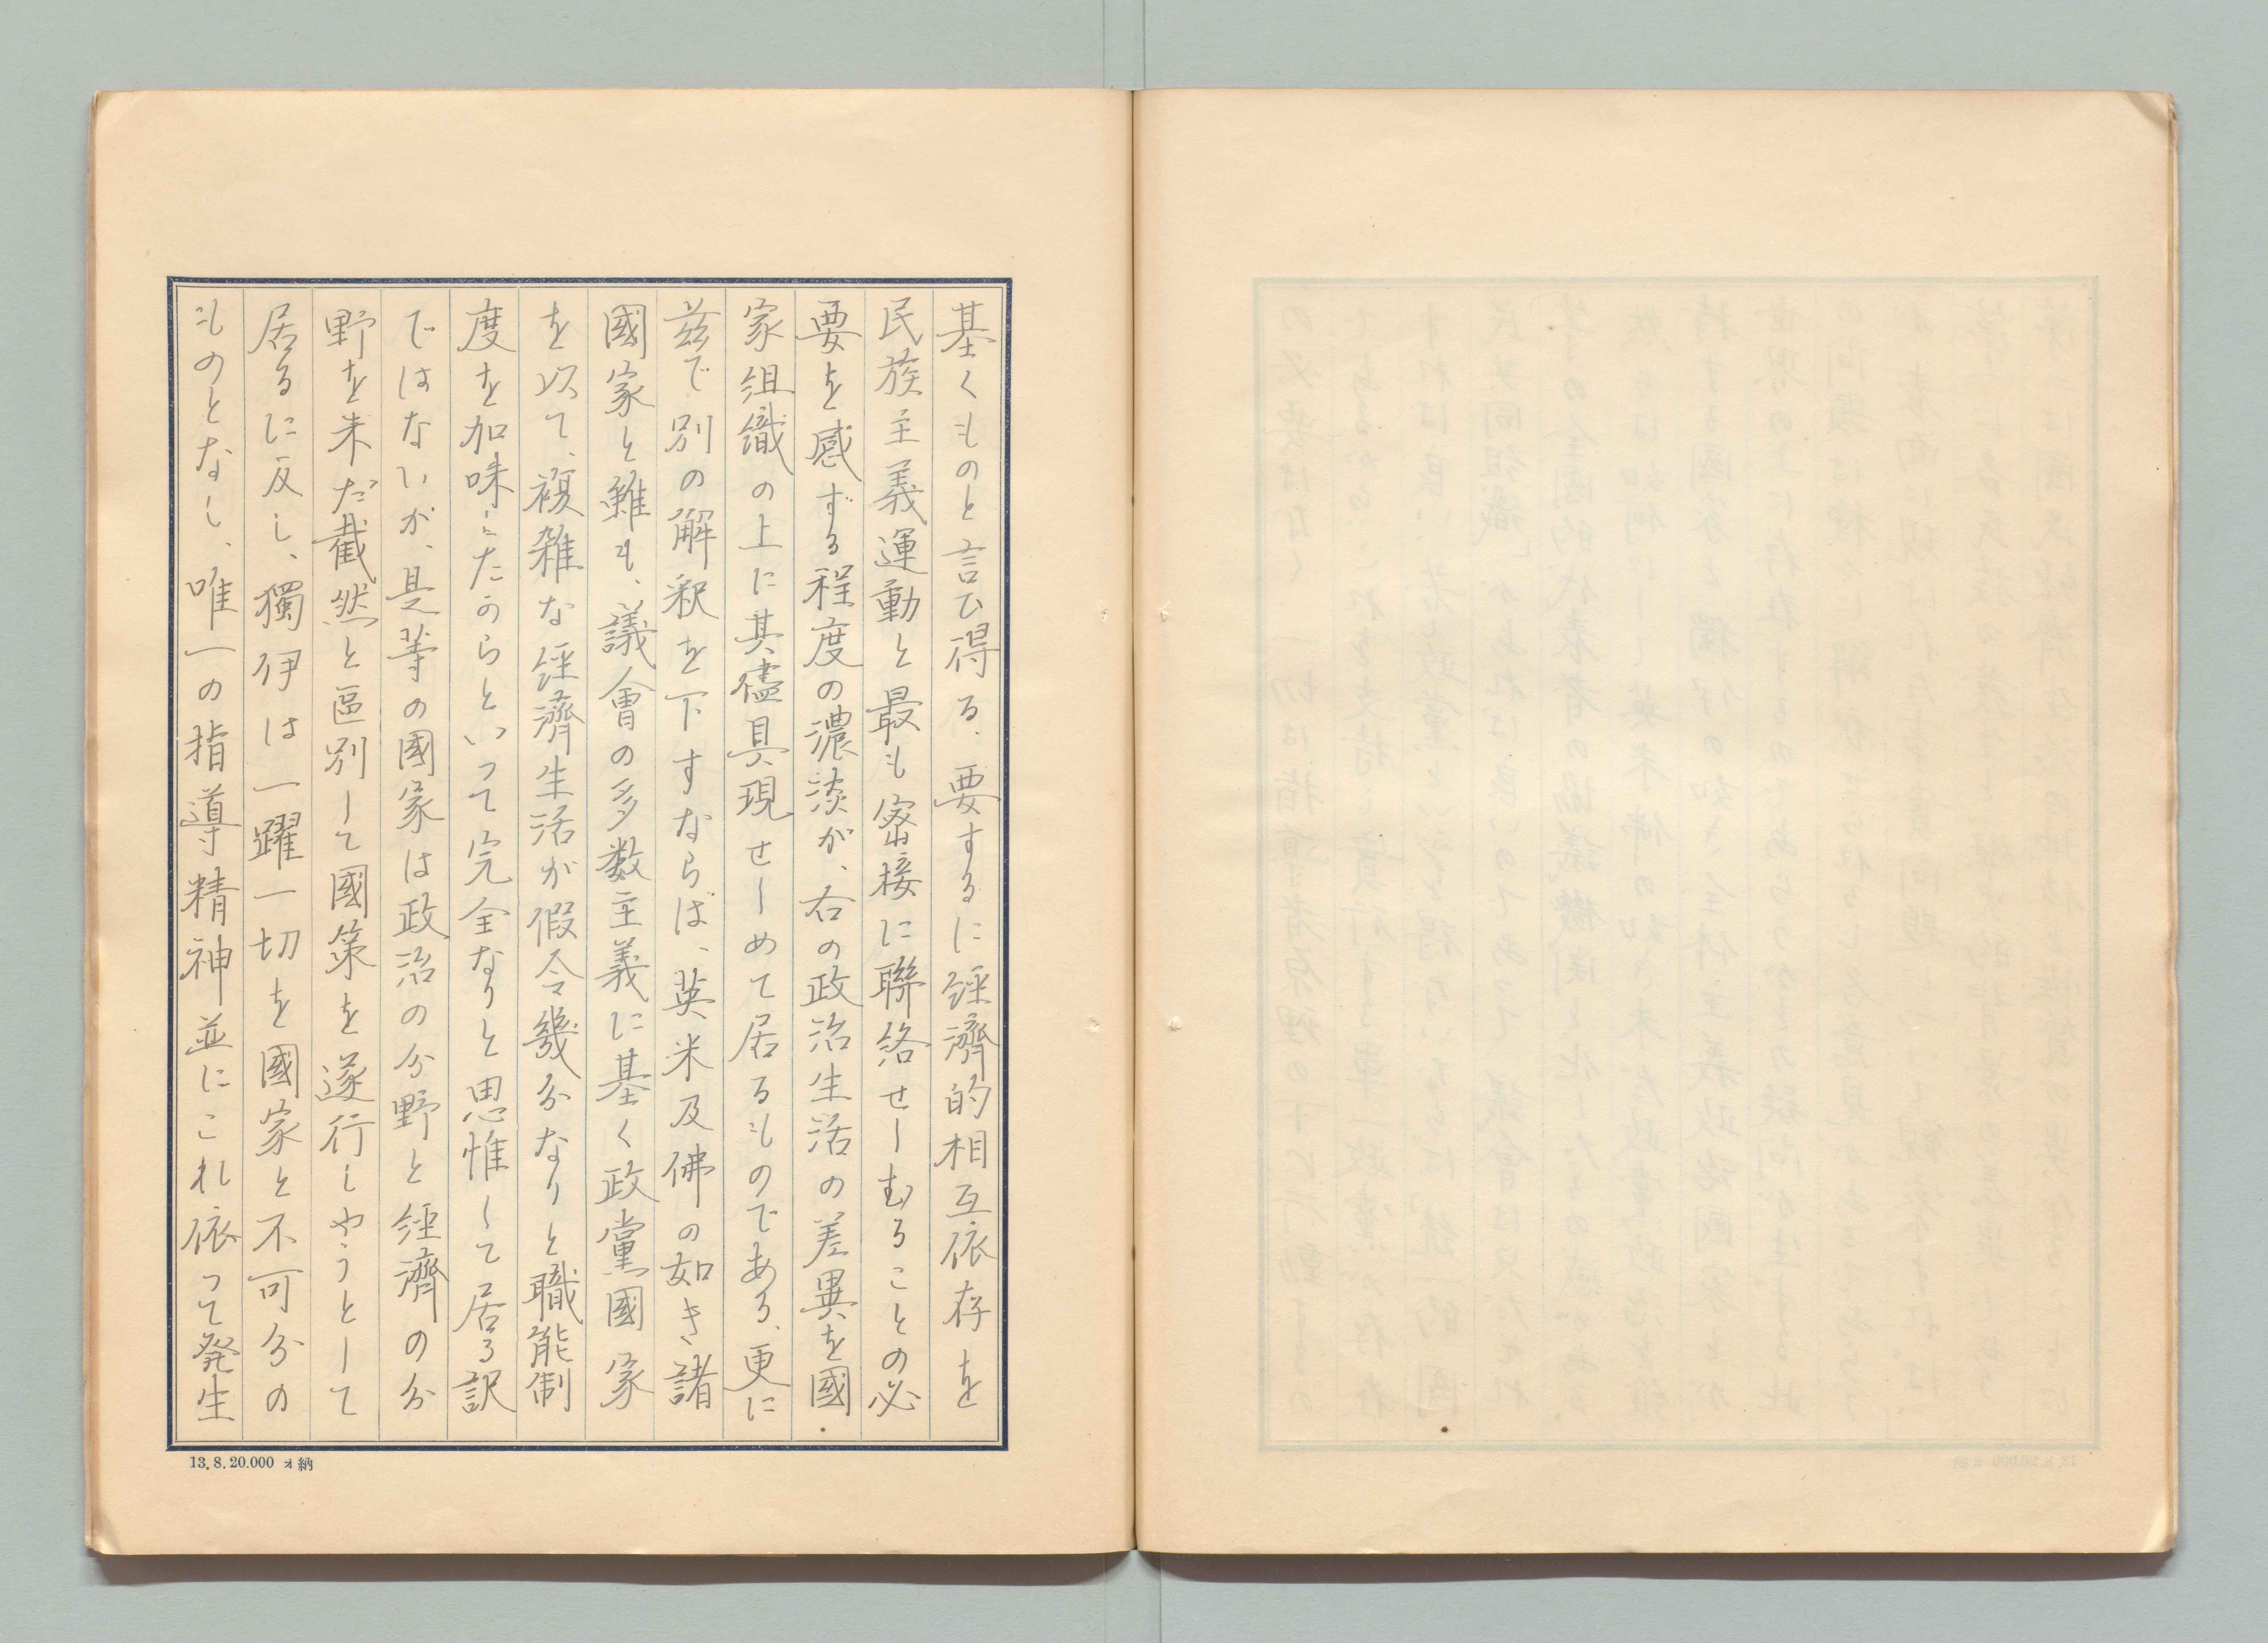 基くものと言ひ得る、要するに経濟的相互依存を
民族主義運動と最も密接に聯絡せしむることの必
要を感ずる程度の濃淡が、右の政治生活の差異を國
家組織の上に其儘具現せしめて居るものである、更に
玆で別の解釈を下すならば、英米及佛の如き諸
國家と雖も、議會の多数主義に基く政黨國家
を以て、複雑な経濟生活が假令幾分なりと職能制
度を加味したからといって完全なりと思惟して居る訳
ではないが、是等の國家は政治の分野と経濟の分
野を未だ截然と區別して國策を遂行しやうとして
居るに反し、獨伊は一躍一切を國家と不可分の
ものとなし、唯一の指導精神並にこれ依って発生
13.8.20.000 ォ納